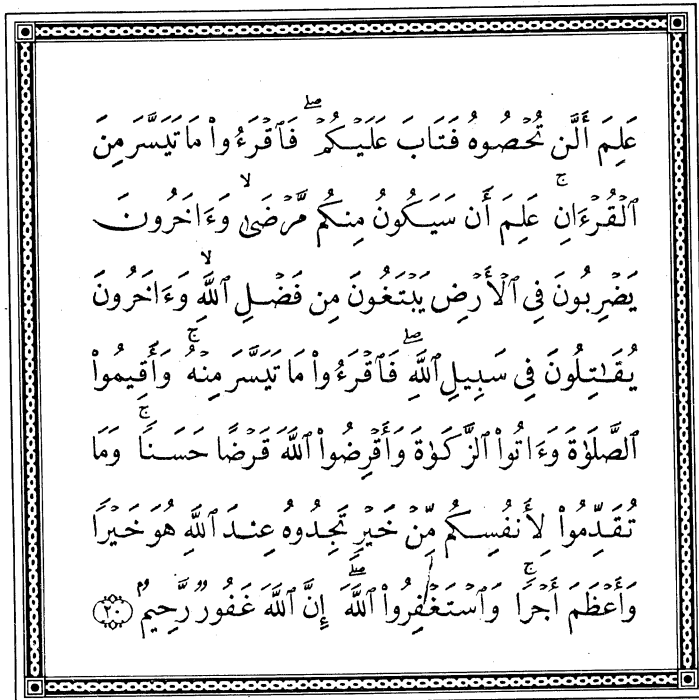 عَلِمَ أَلَّن تُحْصُوهُ فَتَابَ عَلَيْكُمْ ۖ فَٱقْرَءُوا۟ مَا تَيَسَّرَ مِنَ
ٱلْقُرْءَانِ ۚ عَلِمَ أَن سَيَكُونُ مِنكُم مَّرْضَىٰ ۙ وَءَاخَرُونَ
يَضْرِبُونَ فِى ٱلْأَرْضِ يَبْتَغُونَ مِن فَضْلِ ٱللَّهِ ۙ وَءَاخَرُونَ
يُقَـٰتِلُونَ فِى سَبِيلِ ٱللَّهِ ۖ فَٱقْرَءُوا۟ مَا تَيَسَّرَ مِنْهُ ۚ وَأَقِيمُوا۟
ٱلصَّلَوٰةَ وَءَاتُوا۟ ٱلزَّكَوٰةَ وَأَقْرِضُوا۟ ٱللَّهَ قَرْضًا حَسَنًا ۚ وَمَا
تُقَدِّمُوا۟ لِأَنفُسِكُم مِّنْ خَيْرٍ تَجِدُوهُ عِندَ ٱللَّهِ هُوَ خَيْرًا
وَأَعْظَمَ أَجْرًا ۚ وَٱسْتَغْفِرُوا۟ ٱللَّهَ ۖ إِنَّ ٱللَّهَ غَفُورٌ رَّحِيمٌۢ ﴿٢٠﴾